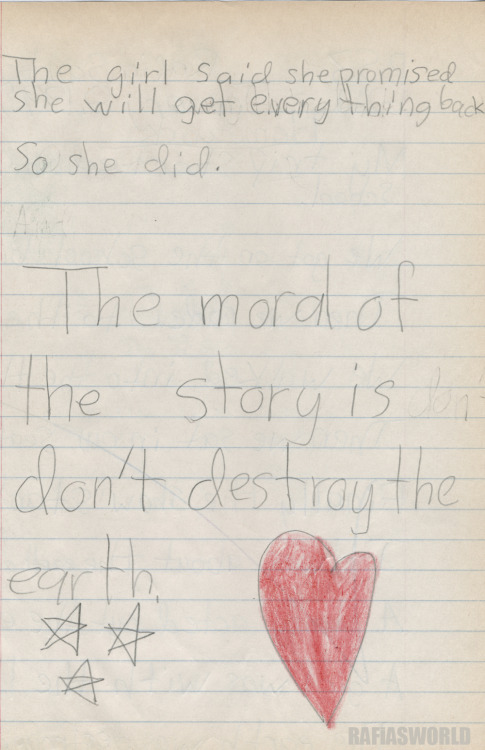 The girl said she promised
she will get every thing back
So she did.
The moral of
the story is don't
don't destroy the
earth.
RAFIASWORLD